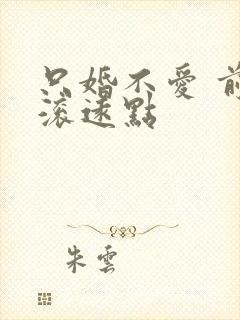 只婚不愛 前
滾遠點
朱雲